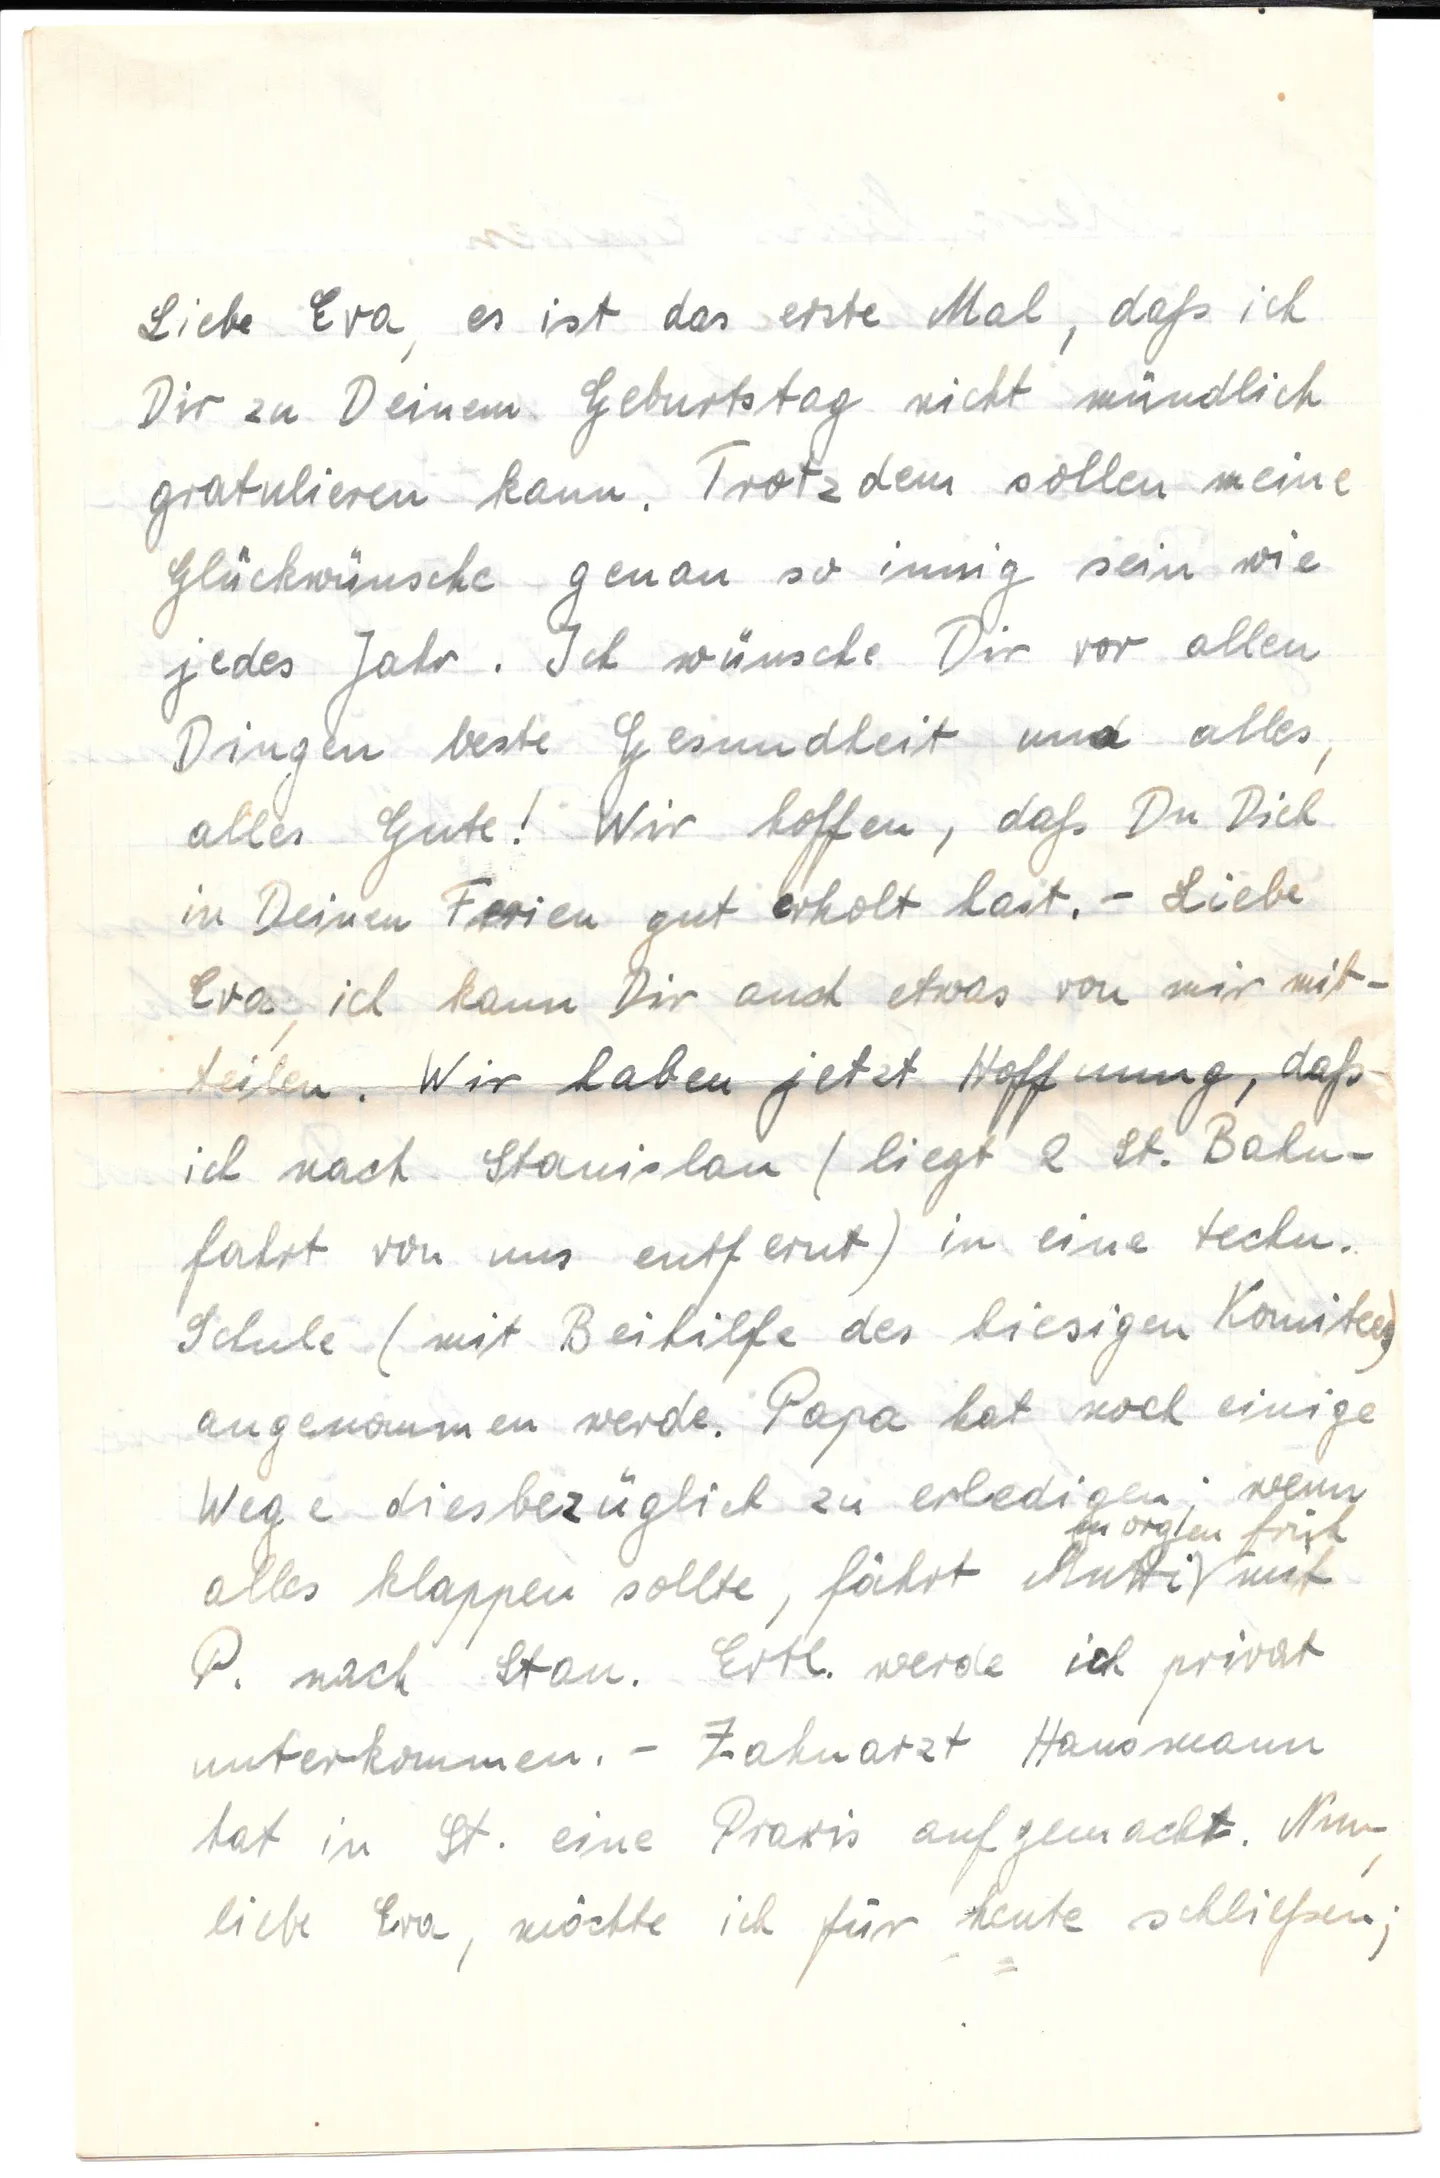 Liebe Eva, es ist das erste Mal, daß ich
Dir zu Deinem Geburtstag nicht mündlich
gratulieren kann. Trotzdem sollen meine
Glückwünsche genau so innig sein wie
jedes Jahr. Ich wünsche Dir vor allen
Dingen beste Gesundheit und alles,
alles Gute! Wir hoffen, daß Du Dich
in Deinen Ferien gut erholt hast. – Liebe
Eva, ich kann Dir auch etwas von mir mit-
teilen. Wir haben jetzt Hoffnung, daß
ich nach Stanislau (liegt 2 St. Bahn-
fahrt von uns entfernt) in eine techn.
Schule (mit Beihilfe des hiesigen Komitees)
angenommen werde. Papa hat noch einige
Wege diesbezüglich zu erledigen; wenn
morgen früh
alles klappen sollte, fährt Mutti mit
P. nach Stan. Evtl. werde ich privat
unterkommen. – Zahnarzt Hausmann
hat in St. eine Praxis aufgemacht. Nun,
liebe Eva, möchte ich für heute schließen;